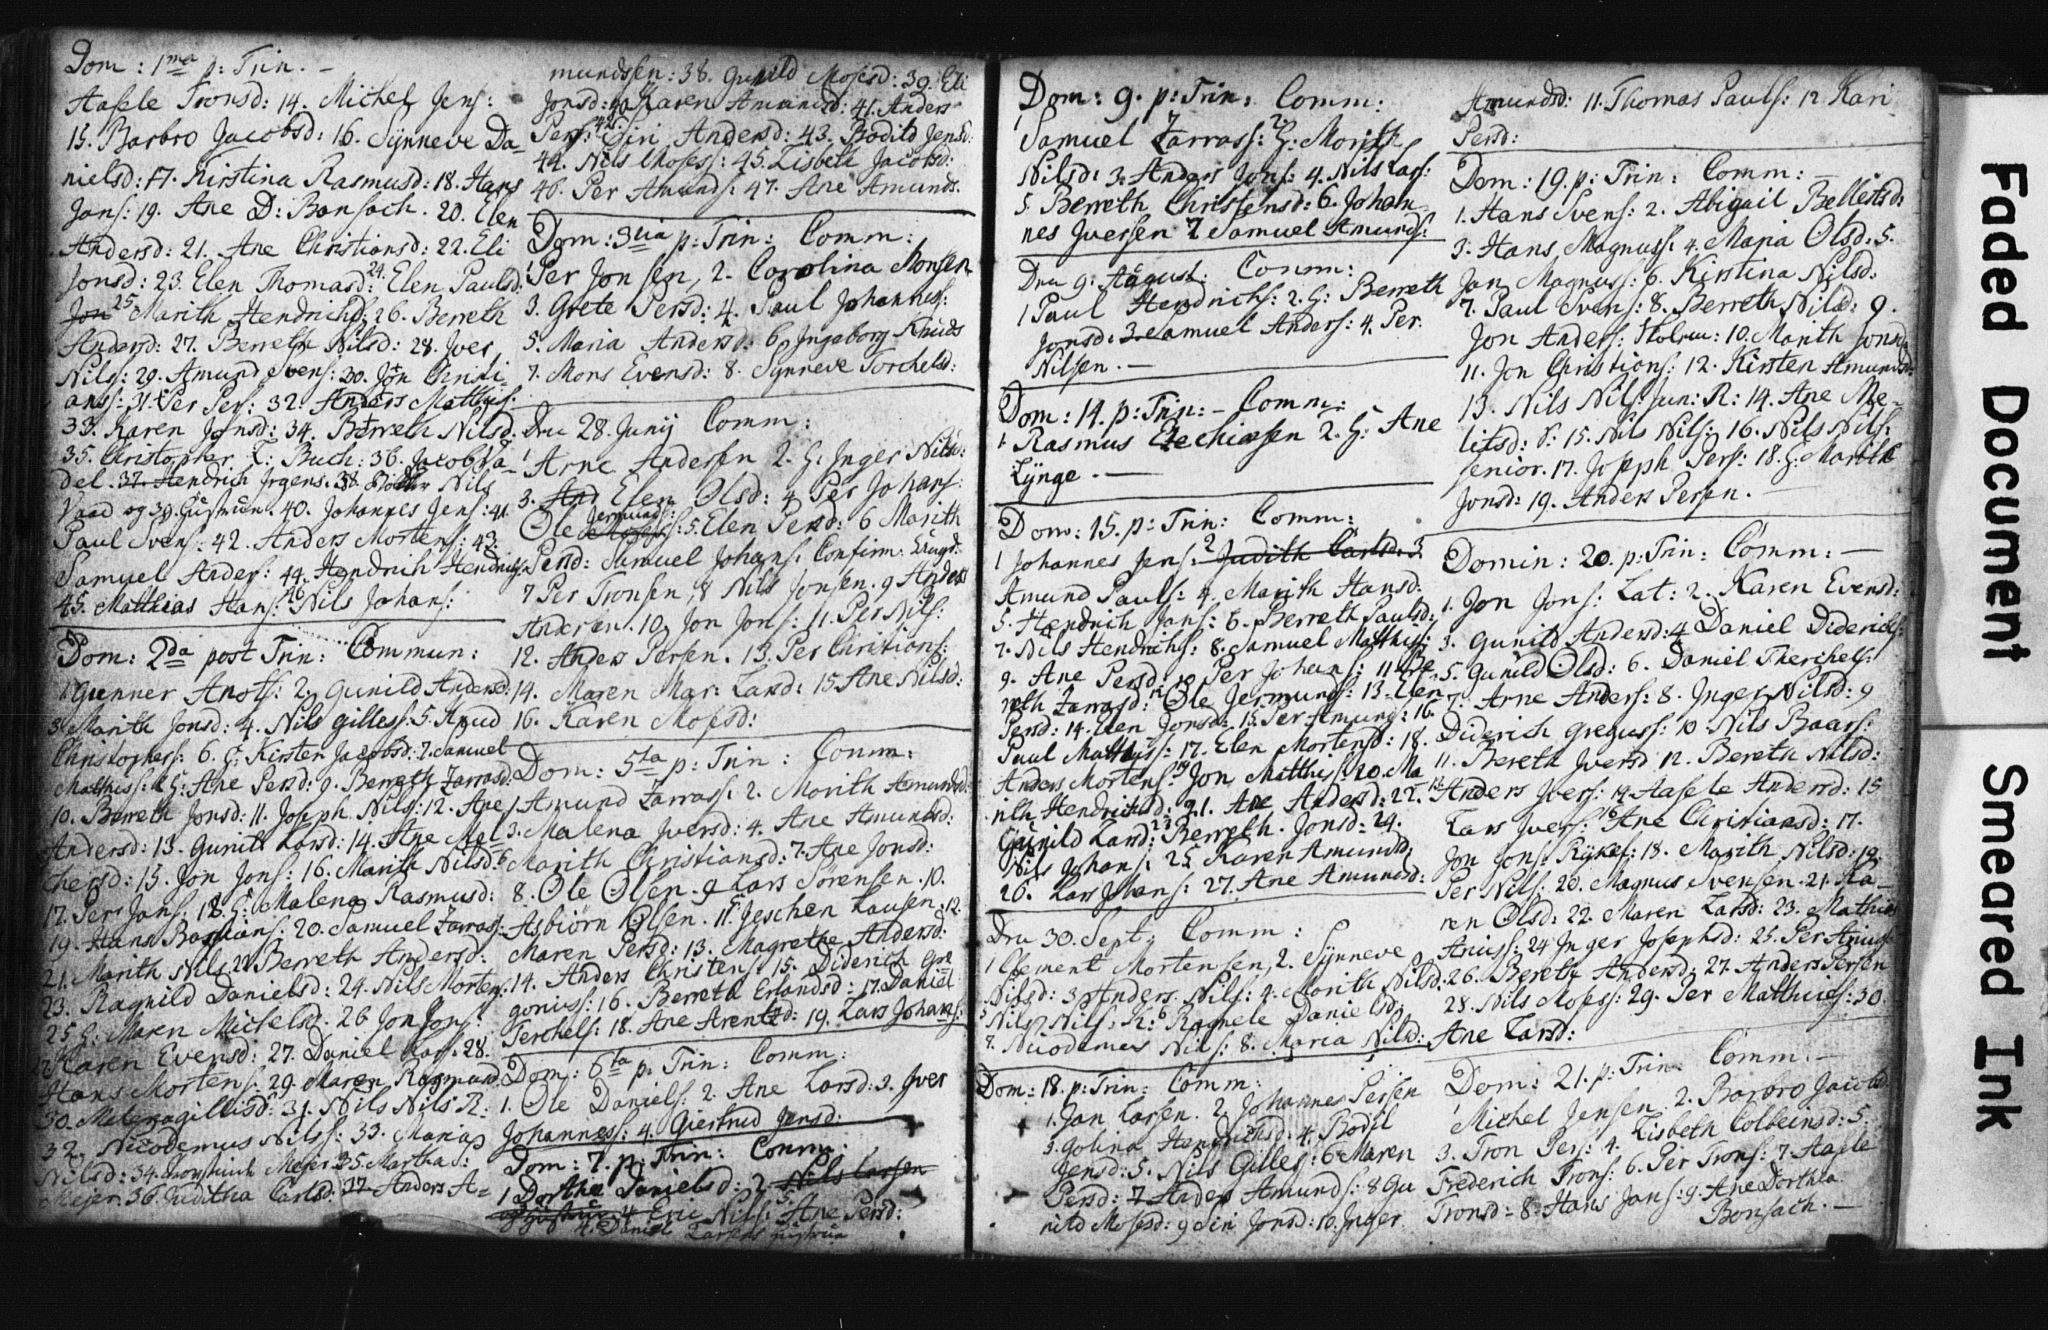 Dom: 1ma p: Trin. –
Aasele Tronsd: 14. Michel Jens:
15. Barbro Jacobsd: 16. Synneve Da=
nielsd: 17. Kirstina Rasmusd: 18. Hans
Jans: 19. Ane D: Bonsach. 20. Elen
Andersd: 21. Ane Christiansd: 22. Eli
Jonsd: 23. Elen Thomasd: 24. Elen Paulsd:
25 Marith Hendrichsd: 26. Berreth
Andersd: 27. Berreth Nilsd: 28. Iver
Nils: 29. Amund Svens: 30. Jon Christi=
ans: 31. Per Pers: 32. Anders Matthis:
33. Karen Jonsd: 34. Berreth Nilsd.
35. Christopher T: Buch: 36. Jacob Va=
del. 37. Hendrich Jrgens. 38. Nils
Vaad og 39. Hustrue. 40. Johannes Jens: 41
Paul Svens: 42. Anders Mortens: 43.
Samuel Anders: 44. Hendrich Hendrichs:
45. Matthias Hans: 46 Nils Johans:
Dom: 2da post Trin: Commun:
1. Gunner Anots: 2. Gunild Andersd:
3. Marith Jonsd: 4. Nils Gilless: 5. Knud
Christophers: 6. H: Kirsten Jacobsd: 7. Samuel
Matthiss: 8 H: Ane Persd: 9. Berreth Zarrasd:
10. Berreth Jonsd: 11. Joseph Nils: 12. Ane
Andersd: 13. Gunild Larsd: 14. Ane Mel=
chersd: 15. Jon Jons: 16. Marith Nilsd:
17. Pers Jans: 18. H: Malena Rasmusd:
19. Hans Bastians: 20. Samuel Zarras:
21. Marith Nils 22 Berreth Andersd:
23. Ragnild Danielsd: 24. Nils Mortens:
25 H: Maren Michelsd. 26 Jon Jons:
Karen Evensd: 27. Daniel Lars: 28.
Hans Mortens: 29. Maren Rasmusd.
30. Metena Gillisd: 31. Nils Nils R:
32. Nicodemus Nilss: 33. Maria
Nilsd: 34. Meier 35. Martha
Meier. 36. Juditha Carlsd: 37 Anders A=
mundsen: 38. Gunild Mosesd: 39. Eli
Jonsd: 40 Karen Amundsd: 41. Anders
Pers: 42. Siri Andersd: 43. Bodild Jensd:
44. Nils Moses: 45. Lisbeth Jacobsd:
46. Per Amunds: 47. Ane Amunds.
Dom: 3tia p: Trin: Comm:
1 Per Jonsen, 2. Carolina Monsen
3. Grete Persd: 4. Paul Johannes:
5. Maria Andersd: 6. Ingeborg Knuds
7. Mons Evensd: 8. Synneve Torchelsd:
Dru 28. Junij Comm:
1 Arne Andersen 2. H: Inger Nilsd:
3. And Elen Olsd: 4. Per Johans:
Ole Jermunds: 5. Elen Persd: 6 Marith
Persd: Samuel Johans: Confirm:
7 Per Tronsen, 8 Nils Jonsen. 9 Anders
Andersen. 10. Jon Jons: 11. Per Nils:
12. Anders Persen. 13. Per Christions:
14. Maren Mar: Larsd: 15. Ane Nilsd:
16. Karen Mosesd:
Dom: 5ta p: Trin: Comm:
1. Amund Zarrass: 2. Morith Amundsd:
3. Malena Iversd: 4. Ane Amundsd:
6 Marith Christiansd: 7. Ane Jonsd:
8. Ole Olsen. 9 Lars Sørensen. 10.
Asbiörn Olsen. 11. Jeschen Lausen. 12.
Maren Persd: 13. Magrethe Andersd:
14. Anders Christens: 15. Diderich Gre
goriss: 16. Berreth Erlandsd: 17. Daniel
Terchels: 18. Ane Arentzd: 19. Lars Johans:
Dom: 6ta p: Trin: Comm:
1. Ole Daniels: 2. Ane Larsd: 3. Iver
Johanness: 4. Giertrud Jensd:
Dom: 7. p: Trin: Comm:
1 Dorthe Danielsd: 2. Nils Larsen
og Hustrue 4 Eric Nils: 5. Ane Persd:
4. Daniel Larsens Hustrue
Dom: 9. p: Trin: Comm:
1 Samuel Zarrass: 2. H: Morith
Nilsd: 3. Anders Jons: 4. Nils Lars:
5. Berreth Christensd: 6. Johan=
nes Iversen 7. Samuel Amunds:
Dru 9. August: Comm:
1 Paul Hendrichs: 2. H: Berreth
Jonsd: 3. Samuel Anders: 4. Per
Nilsen. –
Dom: 14. p: Trin: – Comm:
1. Rasmus Zechiassen 2. H: Ane
Lynge. –
Dom: 15. p: Trin: Comm:
1 Johannes Jens: 2 Judith Carlsd: 3.
Amund Pauls: 4. Marith Hansd:
5. Hendrich Jans: 6. Berreth Paulsd:
7. Nils Hendrichs: 8. Samuel Matthiss:
9. Ane Persd: 10 Per Johans: 11 Be
reth Zarrasd: 12 Ole Jermunds: 13. Elen
Persd: 14. Elen Jonsd: 15. Per Amunds: 16.
Paul Matthiss: 17. Elen Mortensd: 18.
Anders Mortens: 19 Jon Matthiss: 20. Ma
rith Hendrichsd: 21. Ane Andersd: 22.
Gunild Larsd: 23 Berreth. Jonsd: 24.
Nils Johans: 25 Karen Amundsd:
26. Lars Johans: 27. Ane Amundsd:
Dru 30. Sept: Comm:
1 Clement Mortensen, 2. Synneve
Nilsd: 3 Anders Nils: 4. Morith Nilsd:
5 Nils Nils: R: 6 Ragnele Danielsd:
7. Nicodemus Nils: 8. Maria Nilsd:
Dom: 18. p: Trin: Comm:
1. Jan Larsen. 2. Johannes Persen
3. Golina Hendrichsd: 4. Bodil
Jensd: 5. Nils Gilles: 6 Maren
Persd: 7 Anders Amunds: 8 Gu
nild Mosesd: 9 Siri Jonsd: 10. Inger
Amundsd: 11. Thomas Pauls: 12. Kari
Persd:
Dom: 19. p: Trin: Comm: –
1. Hans Svens: 2. Abigail Bellesd:
3. Hans Magnuss: 4. Maria Olsd: 5.
Jan Magnuss: 6. Kirstina Nilsd:
7. Paul Svens: 8. Berreth Nilsd: 9.
Jon Anders: Holm: 10. Marith Jonsd:
11. Jon Christions: 12. Kirsten Amundsd:
13. Nils Nils: Jun: R: 14. Ane Me=
litsd: S: 15. Nils Nils: 16. Nils Nils:
senior. 17. Joseph Pers: 18. H: Marith
Jonsd: 19. Anders Persen. –
Domin: 20. p: Trin: Comm: –
1. Jon Jons: Lat: 2. Karen Evensd:
3. Gunild Andersd: 4 Daniel Diderichs:
5. Gunild Olsd: 6. Daniel Therchels:
7. Arne Anders: 8. Inger Nilsd: 9
Diderich Greguss: 10 Nils Baars:
11. Bereth Iversd 12. Bereth Nilsd:
13 Anders Ivers: 14. Aasele Andersd: 15
Lars Ivers: 16 Ane Christiansd: 17.
Jon Jons: Rykes: 18. Marith Nilsd: 19.
Per Nils: 20. Magnus Svensen. 21. Ka=
ren Olsd: 22. Maren Larsd: 23. Mathias
Ariuss: 24 Inger Josephsd: 25. Per Ariuss
26. Bereth Andersd: 27. Anders Persen
28. Nils Mosess: 29. Per Matthiess: 30.
Ane Larsd:
Dom: 21. p: Trin: Comm: –
1 Michel Jensen 2. Barbro Jacobsd:
3. Tron Pers: 4. Lisbeth Colbeinsd: 5.
Frederich Trons: 6. Per Trons: 7. Aasele
Tronsd: 8. Hans Jans: 9. Ane Dorthea
Bonsach. –
Faded Document
Smeared Ink